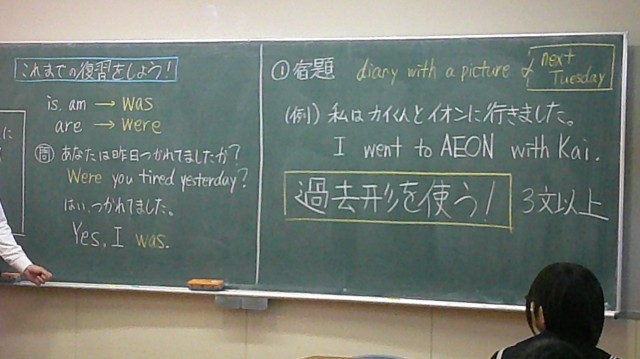 これまでの復習をしよう!
is, am → was
are → were
問 あなたは昨日つかれてましたか?
Were you tired yesterday?
はい、つかれてました。
Yes, I was.
に
① 宿題 diary with a picture
next
Tuesday
(例) 私はカイくんとイオンに行きました。
I went to AEON with Kai.
過去形を使う! 3文以上